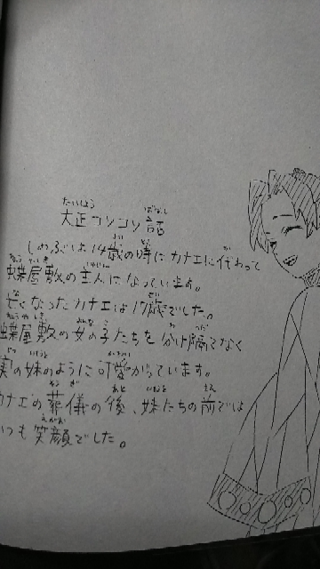 大正コソコソ話
しのぶは14歳の時にカナエに代わって
蝶屋敷の主人になっています。
亡くなったカナエは17歳でした。
蝶屋敷の女の子たちを分け隔てなく
実の妹のように可愛がっています。
カナエの葬儀の後、妹たちの前では
いつも笑顔でした。